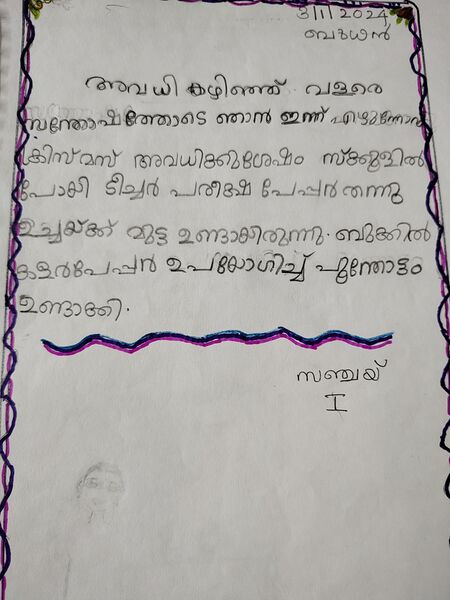 3/1/2024
ബുധൻ
അവധി കഴിഞ്ഞ് വളരെ
സന്തോഷത്തോടെ ഞാൻ ഇന്ന് സ്കൂളിൽ
ക്രിസ്മസ് അവധിക്കുശേഷം സ്ക്കൂളിൽ
പോയി ടീച്ചർ പരീക്ഷ പേപ്പർ തന്നു
ഉച്ചയ്ക്ക് മുട്ട ഉണ്ടായിരുന്നു. ബുക്കിൽ
കളർപേപ്പർ ഉപയോഗിച്ച് പൂന്തോട്ടം
ഉണ്ടാക്കി.
സഞ്ചയ്
I